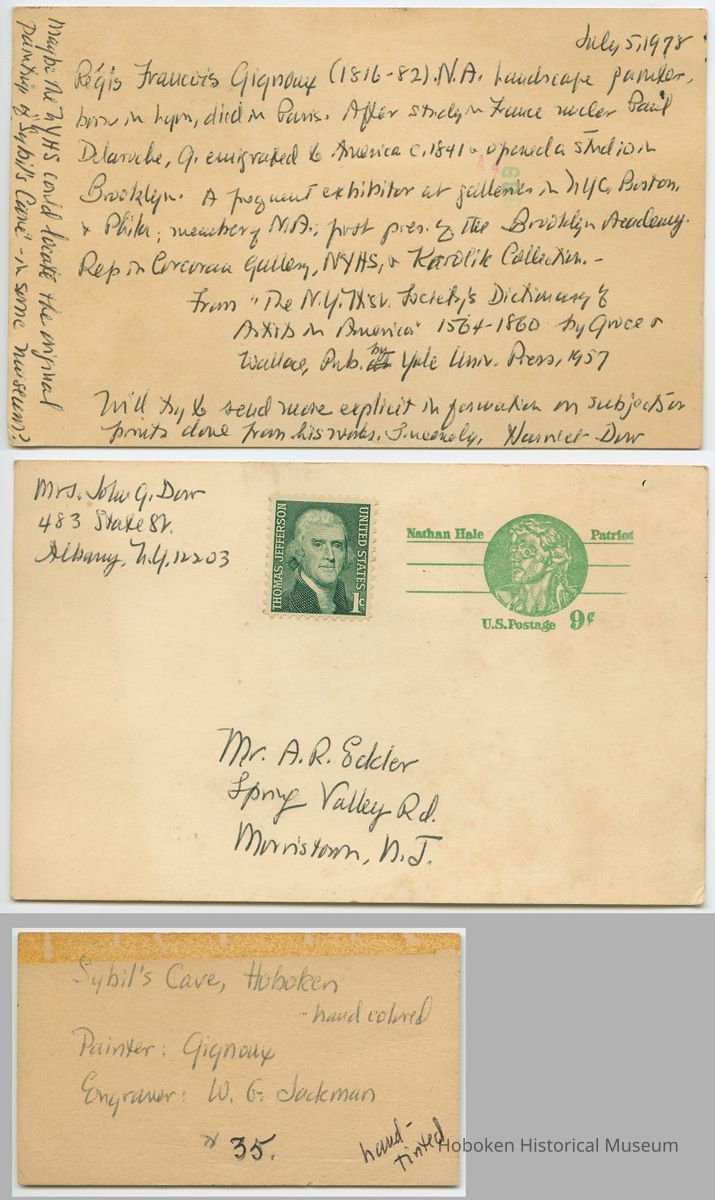 July 5, 1978
Régis Francois Gignoux (1816-82). N.A. Landscape painter,
born in Lyon, died in Paris. After study in France under Paul
Delaroche, G. emigrated to America c.1841 & opened a studio in
Brooklyn. A frequent exhibitor at galleries in NYC, Boston,
& Phila; member of N.A.; first pres. of the Brooklyn Academy.
Rep in Corcoran Gallery, NYHS, & Karolik Collection. -
From "The N.Y. Hist. Society's Dictionary of
Artists in America" 1564-1860 by Groce &
Wallace, Pub. by Yale Univ. Press, 1957
Will try to send more explicit information on subjects or
prints done from his works. Sincerely, Harriet Dow
Maybe the NYHS could locate the original
painting of "Sybil's Cave" - in some museum?
Mrs. John G. Dow
483 State St.
Albany, N.Y. 12203
THOMAS JEFFERSON
UNITED STATES
1c
Nathan Hale Patriot
U.S. Postage 9¢
Mr. A.R. Eckler
Spring Valley Rd.
Morristown, N.J.
Sybil's Cave, Hoboken
- hand colored
Painter: Gignoux
Engraver: W. G. Jackman
35.
hand-
tinted
Hoboken Historical Museum